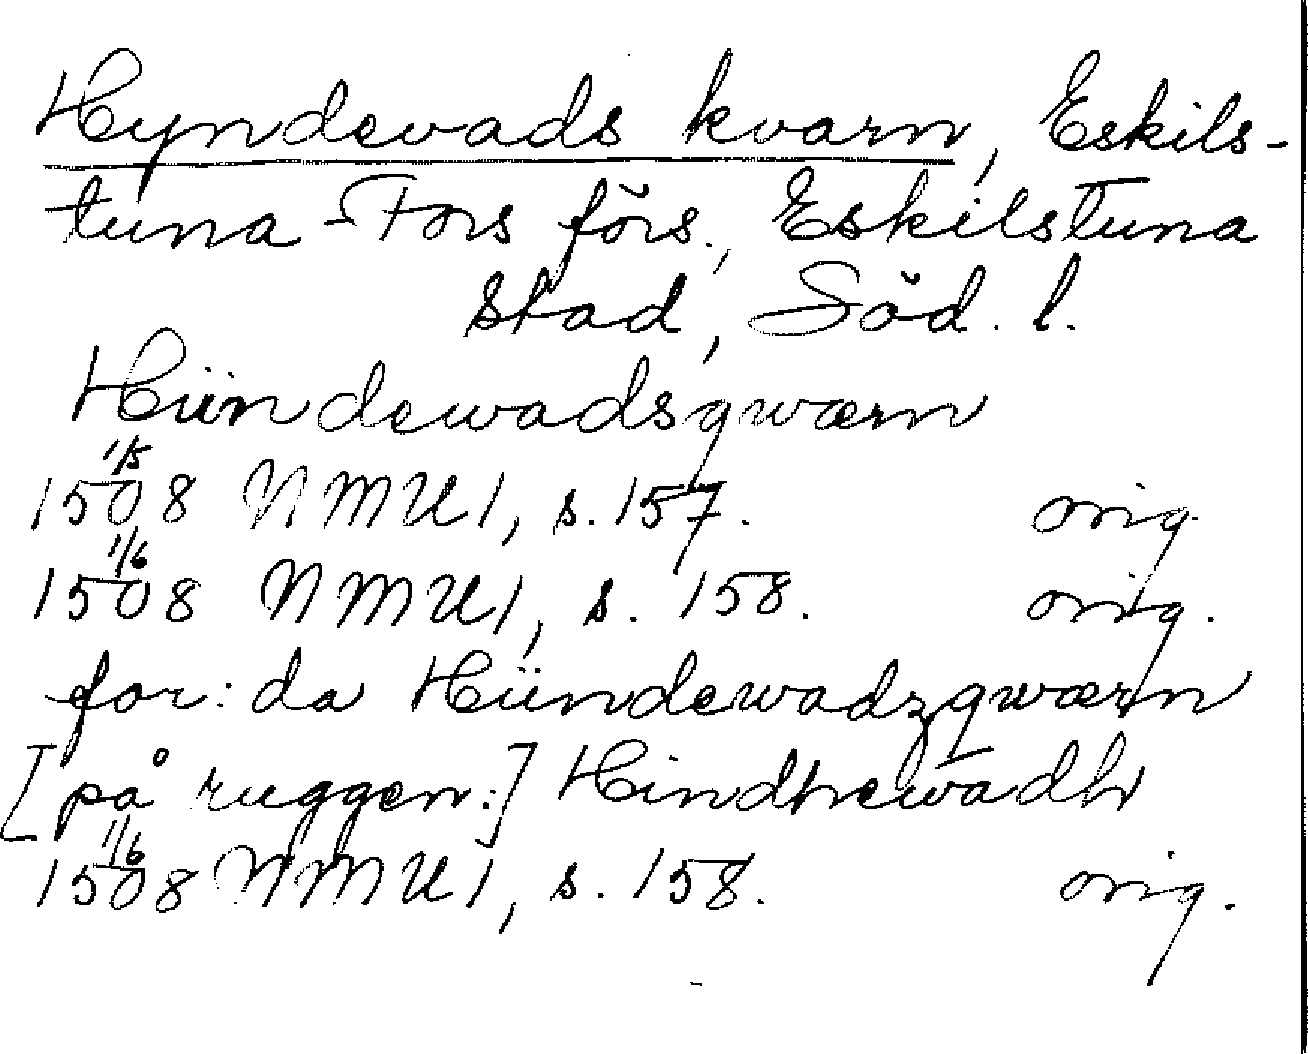 Hyndevads kvarn, Eskils-
tuna-Fors förs., Eskilstuna
stad, Söd. l.
Hündewadsqwærn
1/5
1508 NMU1, s. 157. orig.
1/6
1508 NMU1, s. 158. orig.
for: da Hündewadzqwærn
[på ryggen:] Hindhewadh
1/6
1508 NMU1, s. 158. orig.